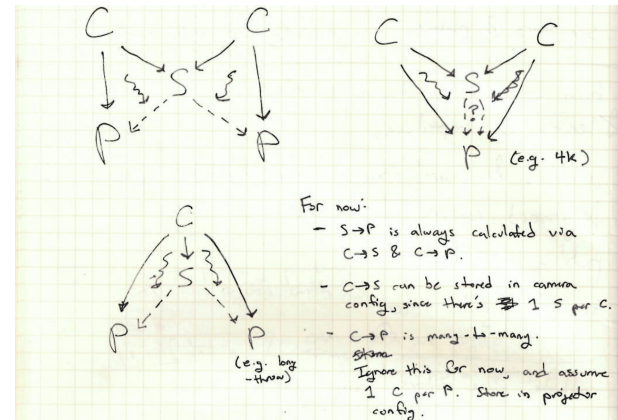 C C
S
P P
C C
S
(?)
P (e.g. 4k)
C
S
P P
(e.g. long
-throw)
For now:
- S→P is always calculated via
C→S & C→P.
- C→S can be stored in camera
config, since there's 1 S per C.
- C→P is many-to-many.
Store
Ignore this for now, and assume
1 C per P. Store in projector
config.